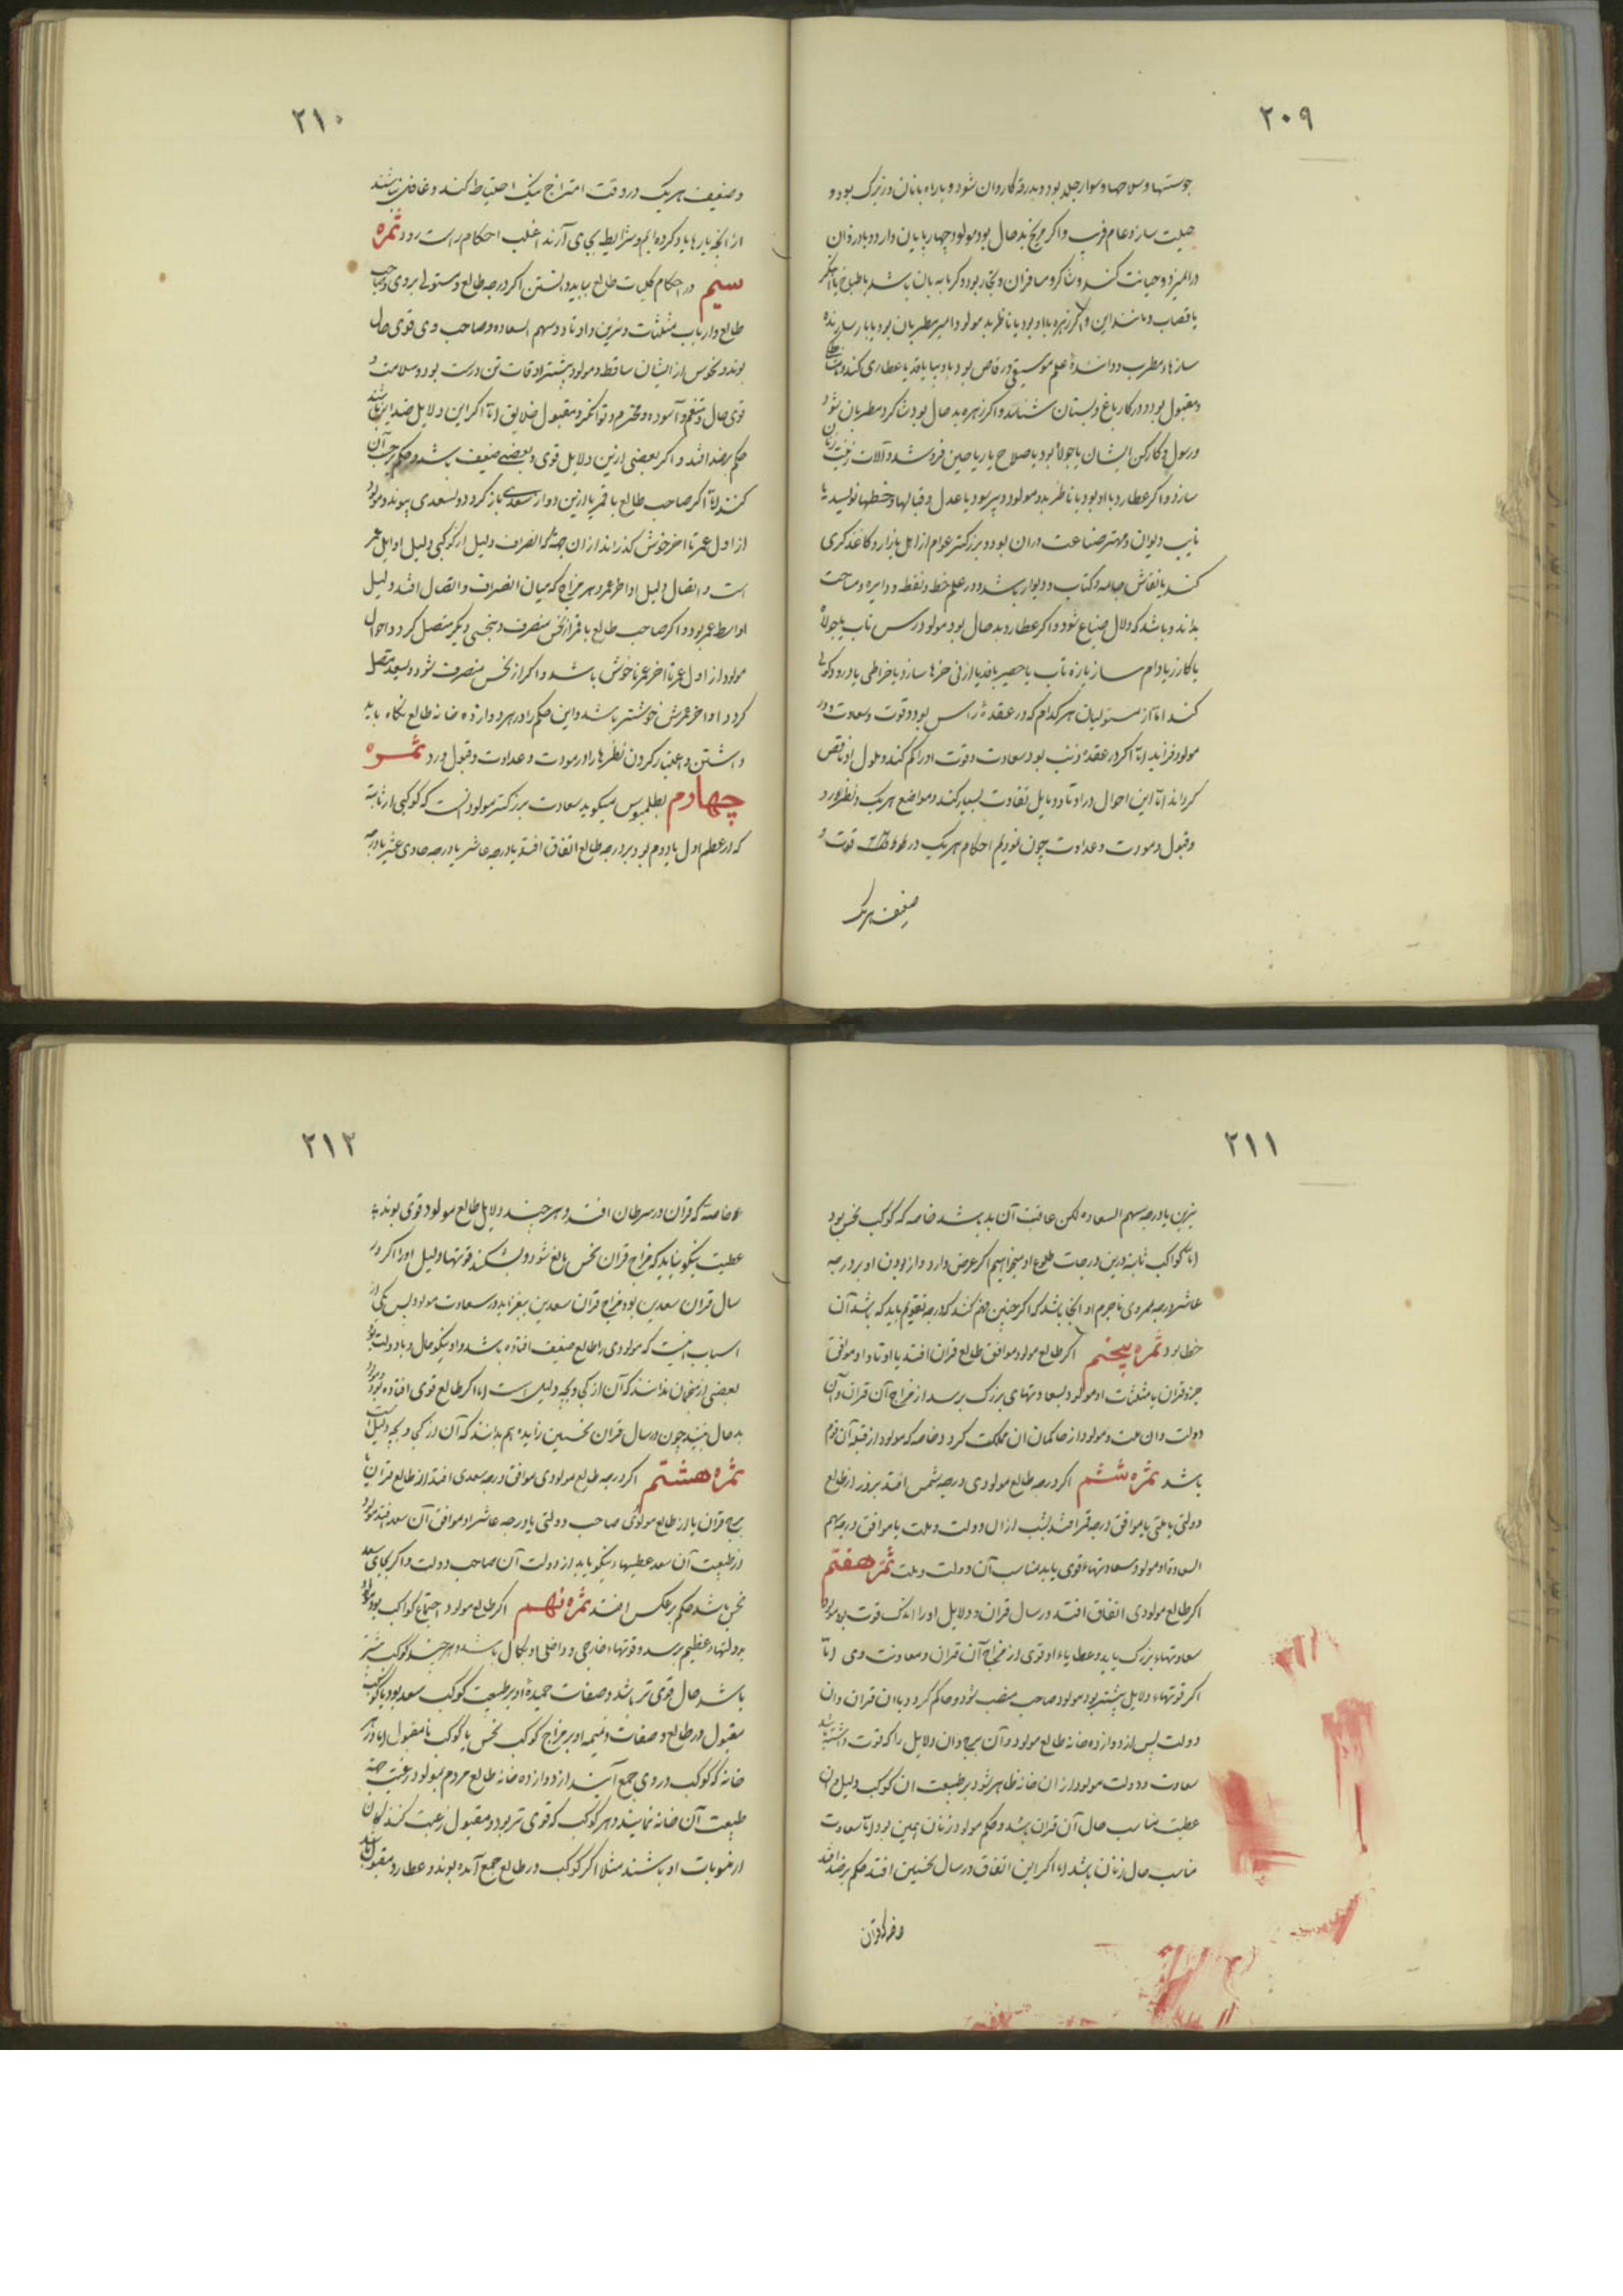 ۲۰۹
و سلاحها و سوار جلد بود و بدرقه کاروان شود و با راه بانان و زیرک بود و
حیلت ساز و عام فریب و اگر مریخ بد حال بود مولود چهارپایان دارد و با دزدان
درآمیزد و خیانت کند و شاگرد مسافران و بود و گرمابه بان باشد یا طباخ یا
یا قصاب و مانند این و اگر زهره با او بود یا ناظر بد مولود امیر مطربان بود یا
سازها و مطرب و دانندهٔ علم موسیقی و رقاص بود یا دیبا بافد یا عطاری کند
و مقبول بود و در کار باغ و بستان شناسد و اگر زهره بد حال بود شاگرد مطربان شود
و رسول و کارکن ایشان یا جولاه بود یا ریاحین فروشد و آلات زینت زنان
سازد و اگر عطارد با او بود یا ناظر بدو مولود دبیر بود یا عدل و قبالها و خطها نویسد یا
نایب دیوان و مهتر صناعت وران بود و بزرگتر عوام از اهل بازار و کاغذگری
کند یا نقاش جامه و کتاب و دیوار باشد و در علم خط و نقطه و دایره و مساحت
بداند و باشد که دلال ضیاع شود و اگر عطارد بد حال بود مولود رسن تاب یا جولاه
یا کازر یا دام ساز یا زه تاب یا حصیر بافد یا از نی خرها سازد یا خراطی یا درودگری
کند اما از مستولیان هر کدام که در عقدهٔ راس بود قوت و سعادت در
مولود فزاید اما اگر در عقدهٔ ذنب بود سعادت و قوت او را کم کند و ملول او ناقص
گرداند اما این احوال در اوتاد و مایل تفاوت بسیار کند و مواضع هر یک و نظر مورد
و قبول و مودت و عداوت چون نورد احکام هر یک در قوت و
ضعیف هر یک
۲۱۰
و ضعیف هر یک در وقت امتزاج نیک احتیاط کند و غافل نباشند
از آنچه بارها یاد کرده‌ایم و شرایط بجای آرند اغلب احکام راست رود ثمره
سیم در احکام کلیات طالع بباید دانستن اگر درجه طالع و مستولی بر وی و صاحب
طالع و ارباب مثلثات و نیرین و اوتاد و سهم السعاده و صاحب وی قوی حال
بوند و نحوس از ایشان ساقط و مولود بیشتر اوقات تن درست بود و سلامت و
قوی حال و متنعم و آسوده و محترم و توانگر و مقبول خلایق اما اگر این دلایل ضد این باشند
حکم بر ضد افتد و اگر بعضی ازین دلایل قوی و بعضی ضعیف باشد حکم بر حسب آن
کنند اما اگر صاحب طالع یا قمر یا ازین دو از سعدی بازگردد و بسعدی پیوندد مولود
از اول عمر تا آخر خوش گذراند از آن جهت که انصراف دلیل از کوکبی دلیل اوایل عمر
است و اتصال دلیل اواخر عمر و هر مزاج که میان انصراف و اتصال افتد دلیل
اواسط عمر بود و اگر صاحب طالع یا قمر از نحس منصرف و بنحسی دیگر متصل گردد احوال
مولود از اول عمر تا آخر عمر ناخوش باشد و اگر از نحس منصرف شود و بسعد متصل
گردد اواخر عمرش خوشتر باشد و این حکم را در هر دوازده خانه طالع نگاه باید
داشتن و اعتبار کردن نظرها را در مودت و عداوت و قبول و رد ثمره
چهارم بطلمیوس میگوید سعادت بزرگتر مولود آنست که کوکبی از ثابته
که در عظم اول یا دوم بود بر درجه طالع اتفاق افتد یا درجه عاشر یا درجه حادی عشر یا درجه
۲۱۱
نیرین یا درجه سهم السعاده لکن عاقبت آن بد باشد خاصه که کوکب نحس بود
اما کواکب ثابته درین درجات طلوع او میخواهیم اگر عرض دارد و از بودن او بر درجه
عاشر درجه ممر وی با جرم او اینجا باشد که اگر چنین فهم کنند که درجه تقویم باید که باشد آن
خطا بود ثمره پنجم اگر طالع مولود موافق طالع قران افتد یا اوتاد او موافق
جزو قران یا مثلثات او مولود بسعادتهای بزرگ برسد از مزاج آن قران و آن
دولت و آن ملت و مولود از حاکمان آن مملکت گردد خاصه که مولود از قبله آن قوم
باشد ثمره ششم اگر درجه طالع مولودی درجه شمس افتد بروز از طالع
دولتی یا ملتی یا موافق درجه قمر افتد بشب از آن دولت و ملت یا موافق درجه سهم
السعاده او مولود سعادتهاء قوی یابد مناسب آن دولت و ملت ثمره هفتم
اگر طالع مولودی اتفاق افتد در سال قران و دلایل او را اندک قوت بود مولود
سعادتهاء بزرگ یابد و عطایاء او قوی از مزاج آن قران و معاونت وی اما
اگر قوتهاء دلایل بیشتر بود مولود صاحب منصب شود و حاکم گردد بآن قران و آن
دولت پس از دوازده خانه طالع مولود و آن برج و آن دلایل را که قوت داشته باشد
سعادت و دولت مولود از آن خانه ظاهر شود بر طبیعت آن کوکب دلیل و آن
عطیت مناسب حال آن قران باشد و حکم مولود زنان همین بود اما سعادت
مناسب حال زنان باشد اما اگر این اتفاق در سال نحسین افتد حکم بر ضد افتد
خاصه که قران
۲۱۲
خاصه که قران در سرطان افتد و هر چند دلایل طالع مولود قوی بوند
عطیت نیکو نیاید که مزاج قران نحس مانع شود و بشکند قوتهاء دلیل او را اگر در
سال قران سعدین بود مزاج قران سعدین بیفزاید در سعادت مولود پس یکی از
اسباب اینست که مولودی را طالع ضعیف افتاده باشد و او نیکو حال و با دولت بود
بعضی از منجمان ندانند که آن از کی و بچه دلیل است اما اگر طالع قوی افتاده بود و مولود
بد حال بینند چون در سال قران نحسین زایده هم ندانند که آن از کی و بچه دلیل است
ثمره هشتم اگر درجه طالع مولودی موافق درجه سعدی افتد از طالع قران یا
برج قران یا از طالع مولودی صاحب دولتی یا درجه عاشر او موافق آن سعد افتد مولود
از طبیعت آن سعد عطیهاء نیکو یابد از دولت آن صاحب دولت و اگر بجای سعد
نحس باشد حکم بر عکس افتد ثمره نهم اگر طالع مولود اجتماع کواکب بود مولود
بدولتهاء عظیم برسد و قوتهاء خارجی و داخلی او بکمال باشد و هر چند کوکب بیشتر
باشد حال قوی تر باشد و صفات حمیدهٔ او بر طبیعت کوکب سعد بود یا کوکب
مقبول در طالع و صفات ذمیمه او بر مزاج کوکب نحس یا کوکب نامقبول اما در هر
خانه که کوکب در وی جمع آیند از دوازده خانه طالع مردم بمولود رغبت جهت
طبیعت آن خانه نمایند و هر کوکب که قوی تر بود و مقبول رغبت کنندگان
از منسوبات او باشند مثلا اگر کوکب در طالع جمع آمده بوند و عطارد مقبول باشد